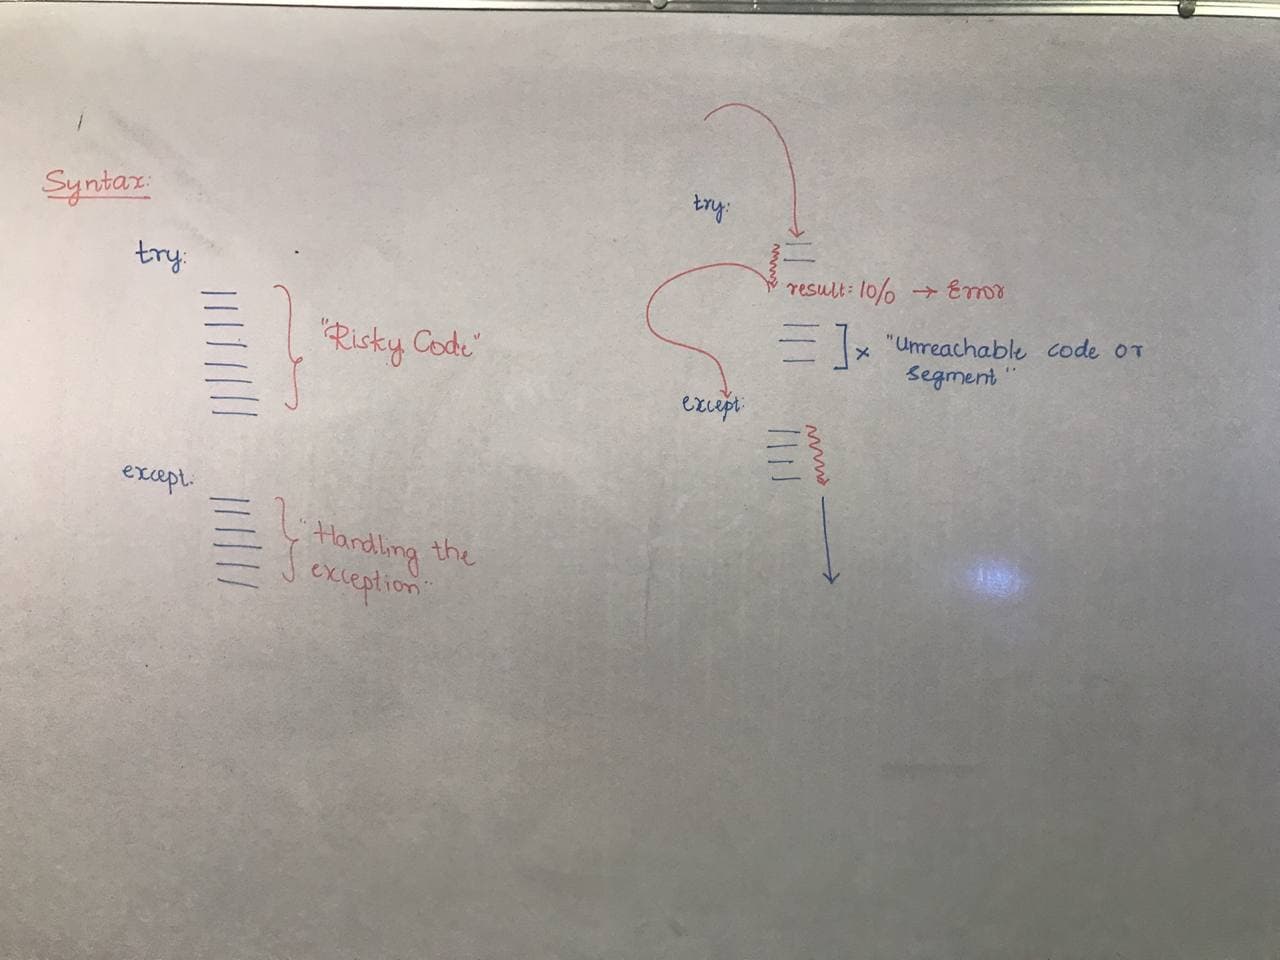 Syntax:
try:
"Risky Code"
except:
"Handling the
exception"
try:
result: 10/0 → Error
"Unreachable code or
segment"
except: